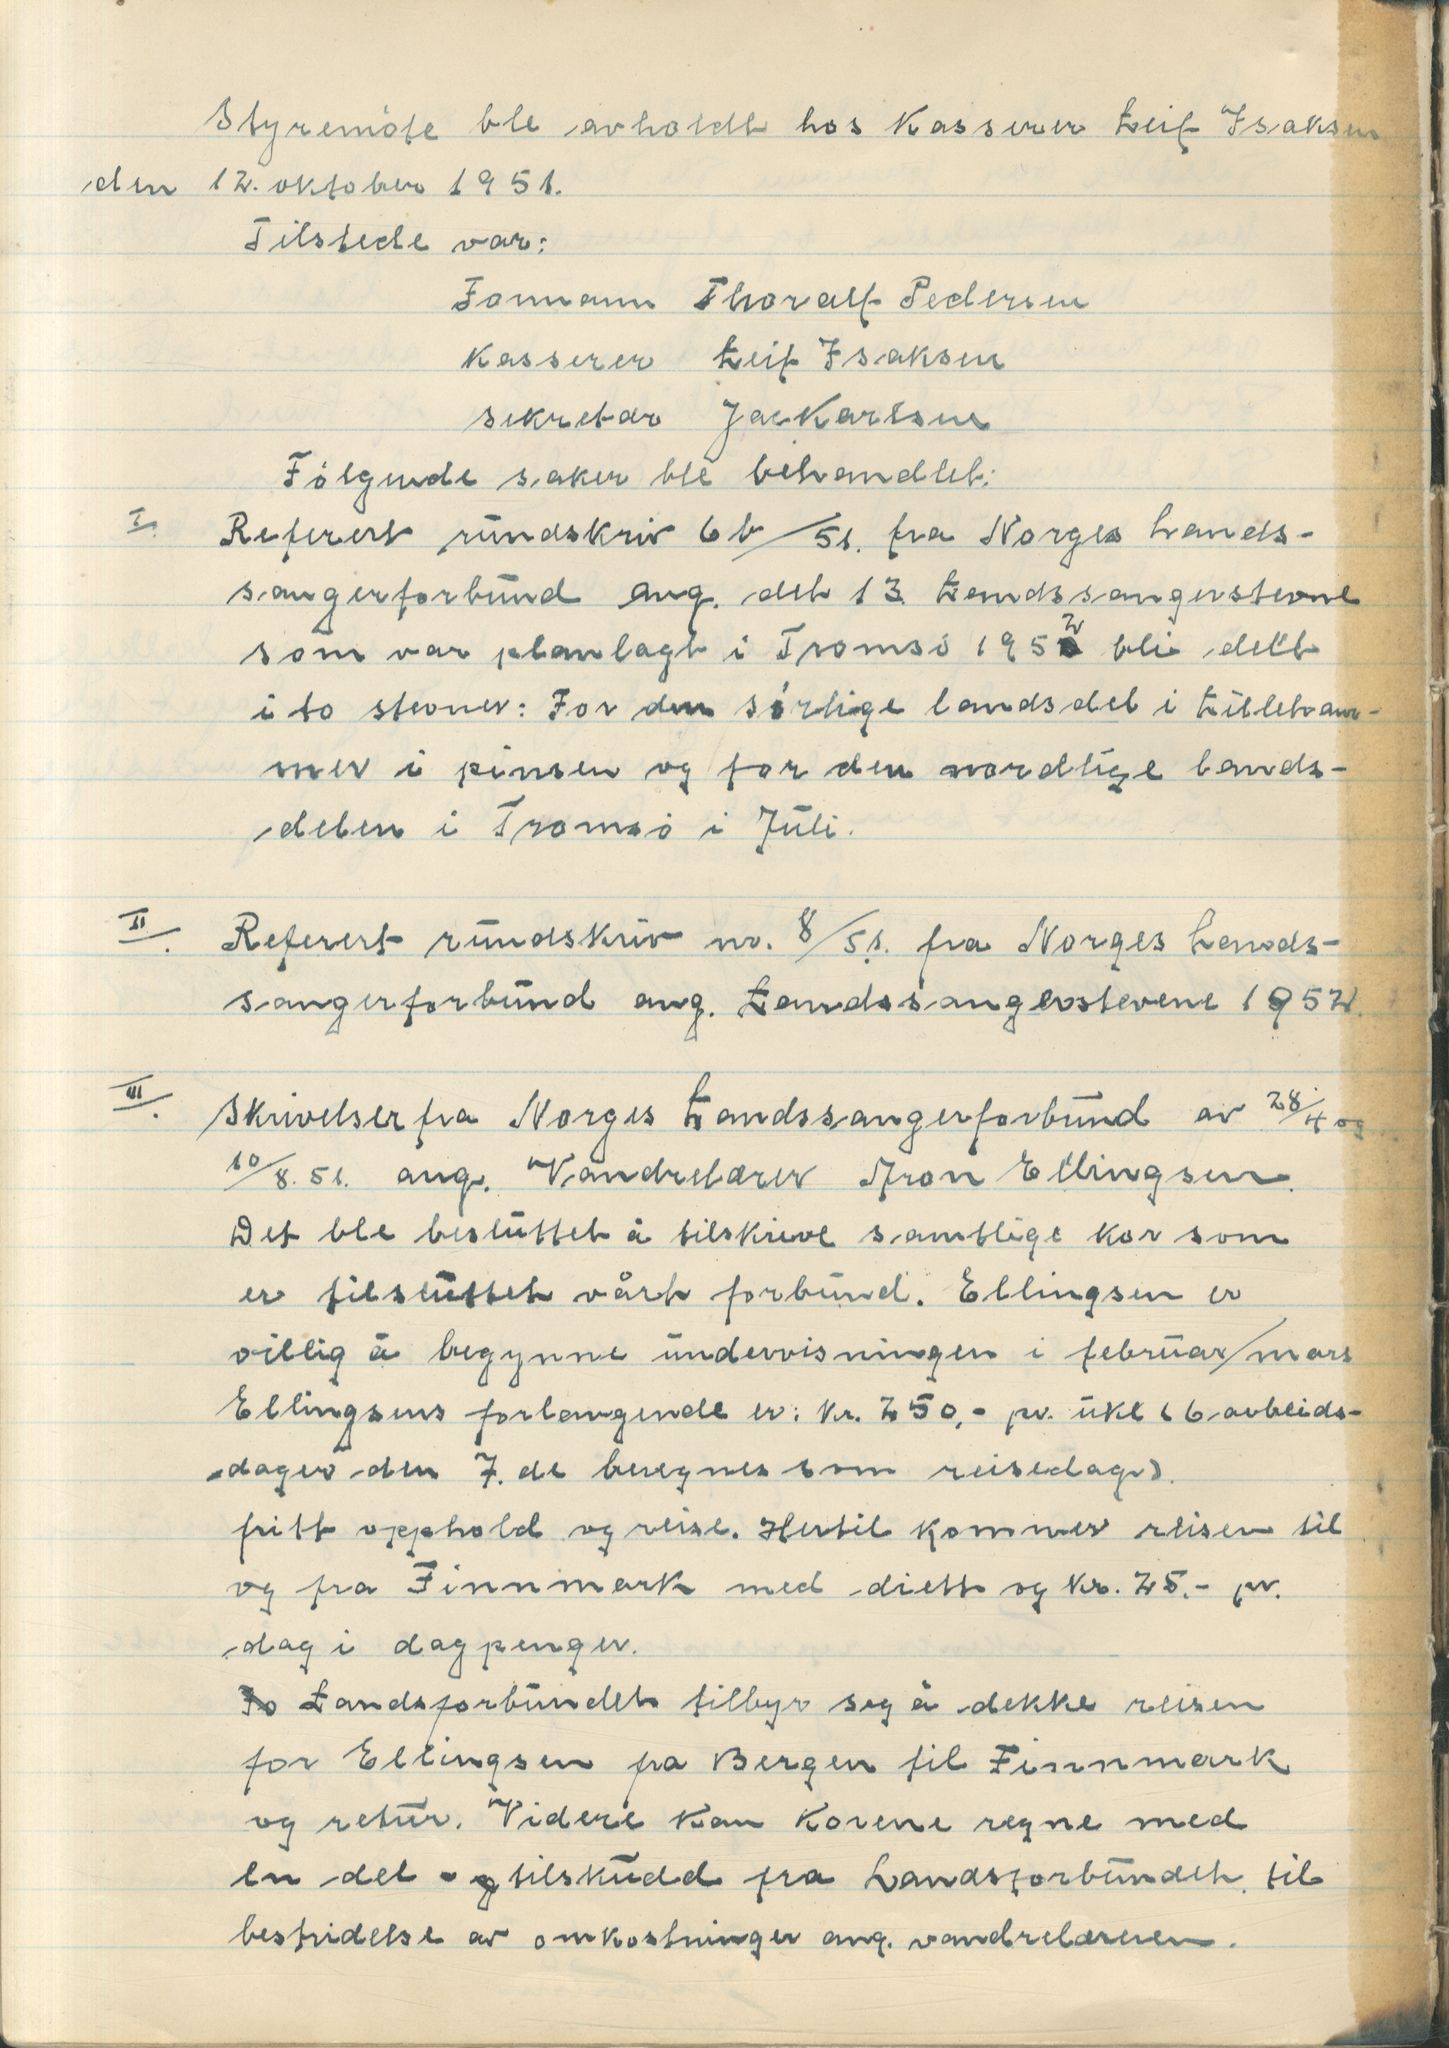 Styremøte ble avholdt hos Kasserer Leif Isaksen
den 12. oktober 1951.
Tilstede var:
Formann Thoralf Pedersen
Kasserer Leif Isaksen
sekretær Jac Karlsen
Følgende saker ble behandlet:
I. Referert rundskriv 6b/51. fra Norges Lands-
sangerforbund ang. det 13. Landssangerstevne
som var planlagt i Tromsø 1952 bli delt
i to stevner: For den sørlige landsdel i Lilleham-
mer i pinsen og for den nordlige lands-
delen i Tromsø i Juli.
II. Referert rundskriv nr. 8/51. fra Norges Lands-
sangerforbund ang. Landssangerstevene 1952.
III. Skrivelser fra Norges Landssangerforbund av 28/4 og
10/8. 51. ang. Vandrelærer Aron Ellingsen.
Det ble besluttet å tilskrive samtlige kor som
er tilsluttet vårt forbund. Ellingsen er
villig å begynne undervisningen i februar/mars
Ellingsens forlangende er: kr. 250,- pr. uke (6 arbeids-
dager den 7. de beregnes som reisedag).
fritt opphold og reise. Hertil kommer reisen til
og fra Finnmark med diett og kr. 25.- pr.
dag i dagpenger.
Landsforbundet tilbyr seg å dekke reisen
for Ellingsen fra Bergen til Finnmark
og retur. Videre kan korene regne med
en del tilskudd fra Landsforbundet til
bestridelse av omkostninger ang. vandrelæreren.